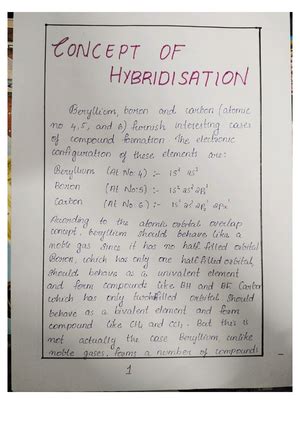 CONCEPT OF
HYBRIDISATION
Beryllium, boron and carbon (atomic
no 4, 5, and 6) furnish interesting cases
of compound formation. The electronic
configuration of these elements are:
Beryllium (At No: 4) :- 1s² 2s²
Boron (At No: 5) :- 1s² 2s² 2p¹
Carbon (At No: 6) :- 1s² 2s² 2px¹
According to the atomic orbital overlap
concept, beryllium should behave like a
noble gas since it has no half filled orbital
Boron, which has only one half filled orbital
should behave as a univalent element
and form compounds like BH and BF. Carbon
which has only two half filled orbital should
behave as a bivalent element and form
compound like CH₂ and CCl₂. But this is
not actually the case Beryllium unlike
noble gases, forms a number of compounds
1